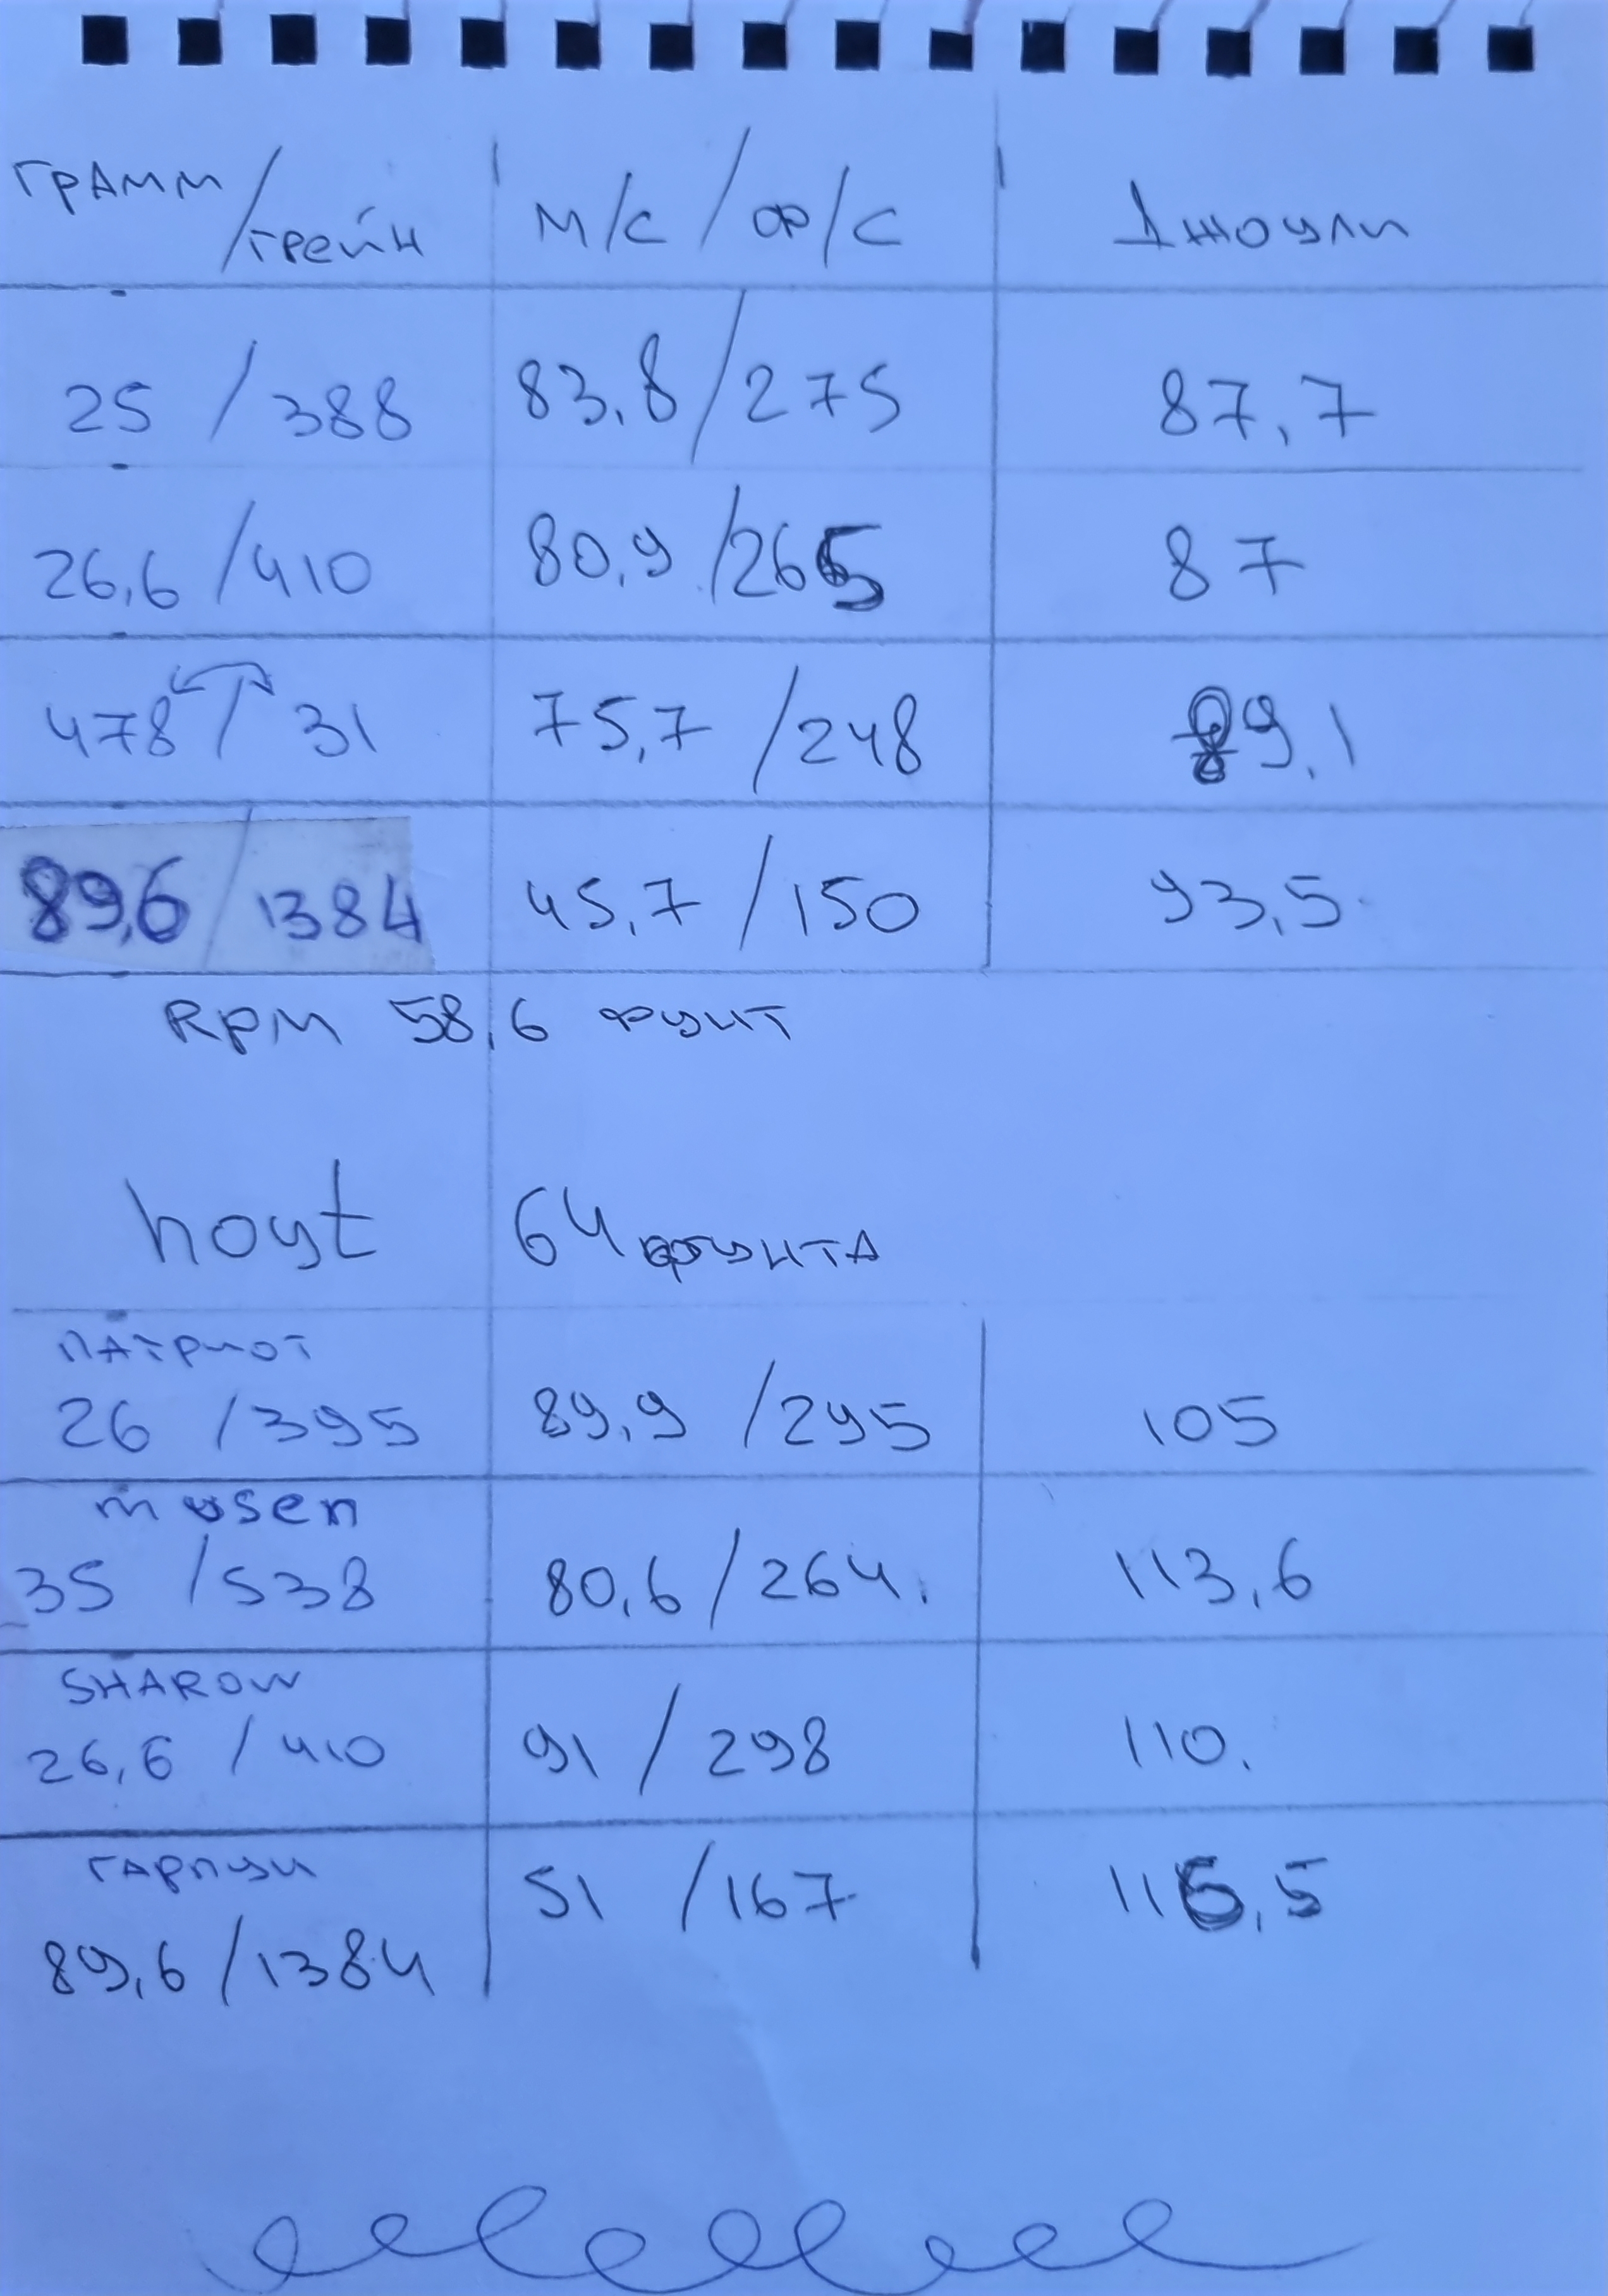 грамм/грейн м/с/ф/с Джоули
25 / 388 83,8/275 87,7
26,6 /410 80,9 /265 87
478 / 31 75,7 /248 89,1
89,6 / 1384 45,7 /150 93,5
RPM 58,6 фунт
hoyt 64 фунта
патриот
26 /395 89,9 /295 105
musen
35 /538 80,6 / 264. 113,6
SHAROW
26,6 / 410 91 / 298 110.
гарпун
89,6 /1384 51 /167 116,5